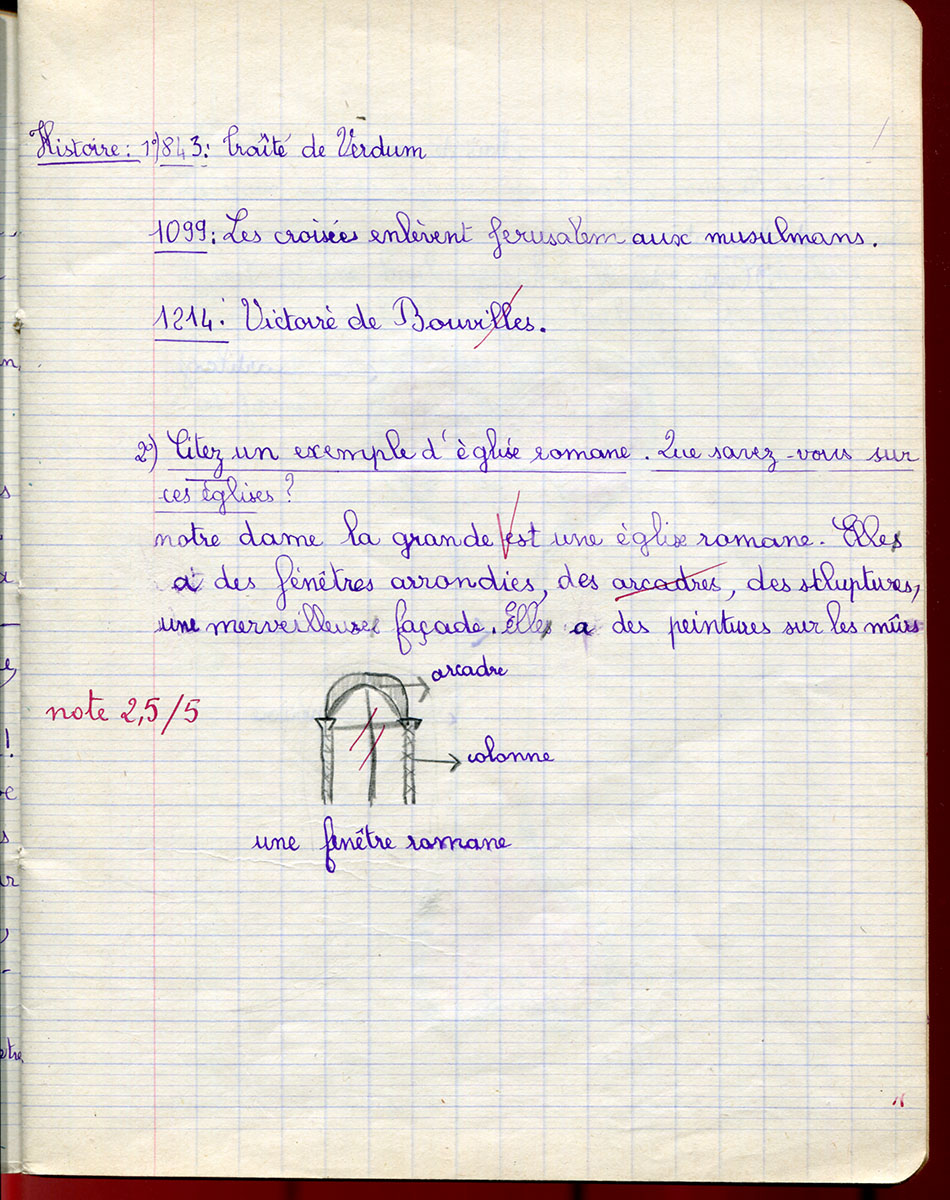 Histoire: 1°) 843: Traîté de Verdum
1099: Les croisées enlèvent Jerusalem aux musulmans.
1214: Victoire de Bouvilles.
2°) Citez un exemple d'église romane. Que savez-vous sur
ces églises?
notre dame la grande est une église romane. Elle
a des fénêtres arrondies, des arcadres, des scluptures,
une merveilleuse façade. Elle a des peintures sur les mûrs
arcadre
note 2,5/5
colonne
une fenêtre romane
n
s
a
e,
!
s
ur
être